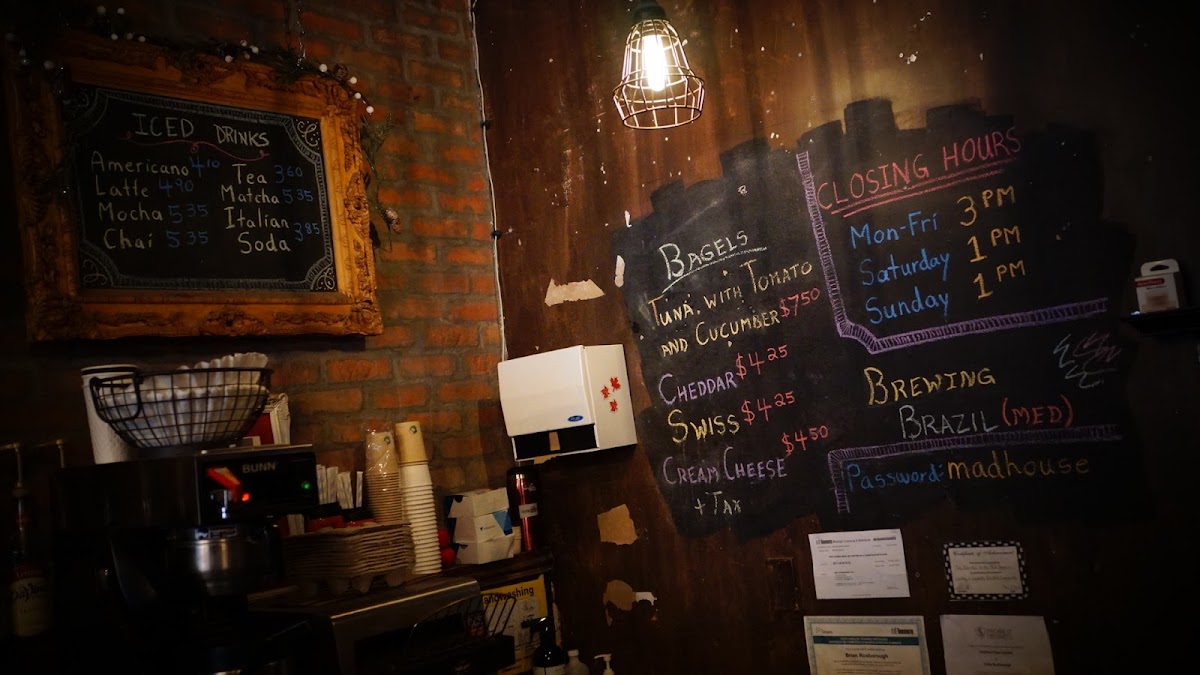 ICED DRINKS
Americano 4.10
Latte 4.90
Mocha 5.35
Chai 5.35
Tea 3.60
Matcha 5.35
Italian
Soda 3.85
BAGELS
TUNA, WITH TOMATO
AND CUCUMBER $7.50
CHEDDAR $4.25
SWISS $4.25
CREAM CHEESE $4.50
+ TAX
CLOSING HOURS
Mon-Fri 3 PM
Saturday 1 PM
Sunday 1 PM
BREWING
BRAZIL (MED)
Password: madhouse
BUNN